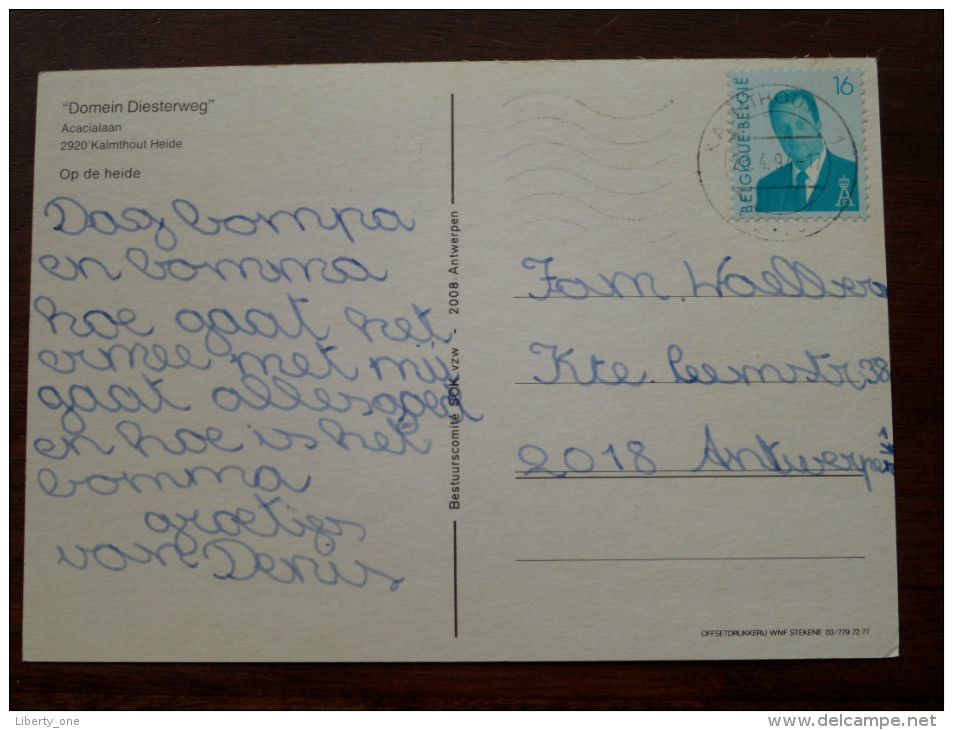 "Domein Diesterweg"
Acacialaan
2920 Kalmthout Heide
Op de heide
Dag bompa
en bomma
hoe gaat het
ermee met mij
gaat alles goed
en hoe is het
bomma
groetjes
van Denis
Bestuurscomité SOK vzw - 2008 Antwerpen
BELGIQUE-BELGIË
16
Fam.
Kte. Leemstr. 38
2018 Antwerpen
OFFSETDRUKKERIJ WNF STEKENE 03/779.72.77
Liberty_one
www.delcampe.net